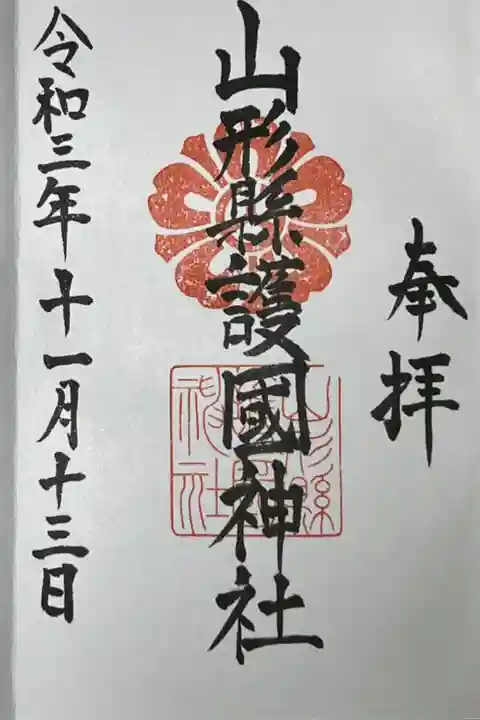 奉拝
山形縣護國神社
令和三年十一月十三日